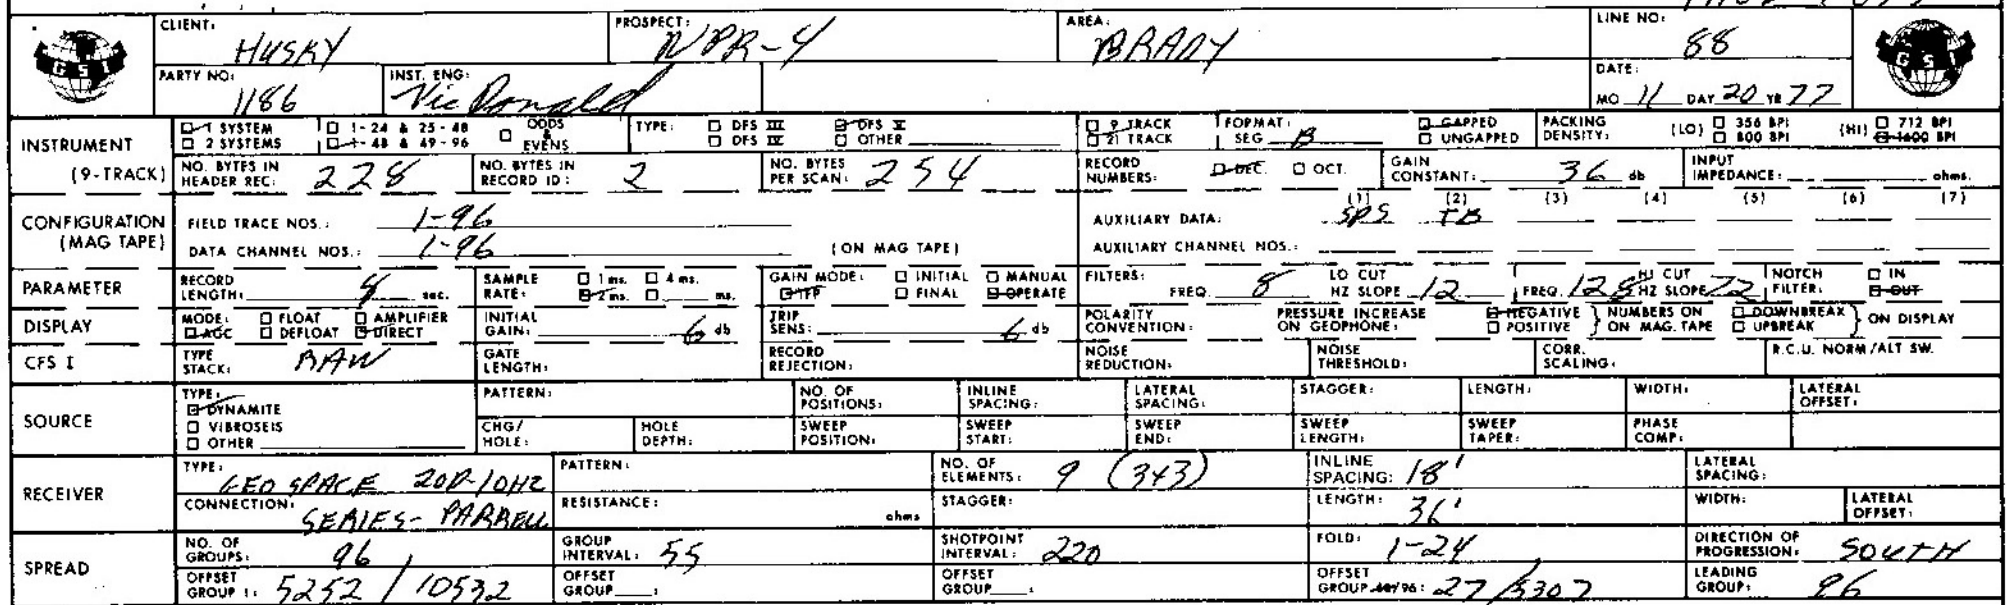 CLIENT: HUSKY PROSPECT: NPR-4 AREA: BRADY LINE NO: 88
PARTY NO: 1186 INST. ENG: Vic Donald DATE: MO 11 DAY 20 YR 77
GSI GSI
INSTRUMENT (9-TRACK)
1 SYSTEM 1-24 & 25-48 ODDS & EVENS TYPE: DFS III DFS V 9 TRACK FORMAT: GAPPED PACKING DENSITY: (LO) 356 BPI (HI) 712 BPI
2 SYSTEMS 1-48 & 49-96 DFS IV OTHER 21 TRACK SEG B UNGAPPED 800 BPI 1600 BPI
NO. BYTES IN HEADER REC: 228 NO. BYTES IN RECORD ID: 2 NO. BYTES PER SCAN: 254 RECORD NUMBERS: DEC. OCT. GAIN CONSTANT: 36 db INPUT IMPEDANCE: ohms.
CONFIGURATION (MAG TAPE)
(1) (2) (3) (4) (5) (6) (7)
FIELD TRACE NOS.: 1-96 AUXILIARY DATA: SPS TB
DATA CHANNEL NOS.: 1-96 (ON MAG TAPE) AUXILIARY CHANNEL NOS.:
PARAMETER RECORD LENGTH: sec. SAMPLE RATE: 1 ms. 4 ms. 2 ms. ms. GAIN MODE: INITIAL MANUAL IFP FINAL OPERATE FILTERS: FREQ. 8 LO CUT HZ SLOPE 12 FREQ. 128 HI CUT HZ SLOPE 72 NOTCH FILTER: IN OUT
DISPLAY MODE: FLOAT AMPLIFIER AGC DEFLOAT DIRECT INITIAL GAIN: 6 db TRIP SENS: 6 db POLARITY CONVENTION: PRESSURE INCREASE ON GEOPHONE: NEGATIVE POSITIVE } NUMBERS ON ON MAG. TAPE DOWNBREAK UPBREAK } ON DISPLAY
CFS I TYPE STACK: RAW GATE LENGTH: RECORD REJECTION: NOISE REDUCTION: NOISE THRESHOLD: CORR. SCALING: R.C.U. NORM/ALT SW.
SOURCE TYPE: DYNAMITE VIBROSEIS OTHER
PATTERN: NO. OF POSITIONS: INLINE SPACING: LATERAL SPACING: STAGGER: LENGTH: WIDTH: LATERAL OFFSET:
CHG/HOLE: HOLE DEPTH: SWEEP POSITION: SWEEP START: SWEEP END: SWEEP LENGTH: SWEEP TAPER: PHASE COMP:
RECEIVER TYPE: GEO SPACE 20D-10HZ PATTERN: NO. OF ELEMENTS: 9 (343) INLINE SPACING: 18' LATERAL SPACING:
CONNECTION: SERIES-PARRELL RESISTANCE: ohms STAGGER: LENGTH: 36' WIDTH: LATERAL OFFSET:
SPREAD NO. OF GROUPS: 96 GROUP INTERVAL: 55 SHOTPOINT INTERVAL: 220 FOLD: 1-24 DIRECTION OF PROGRESSION: SOUTH
OFFSET GROUP 1: 5252 / 10532 OFFSET GROUP : OFFSET GROUP : OFFSET GROUP 48/96: 27/5307 LEADING GROUP: 96